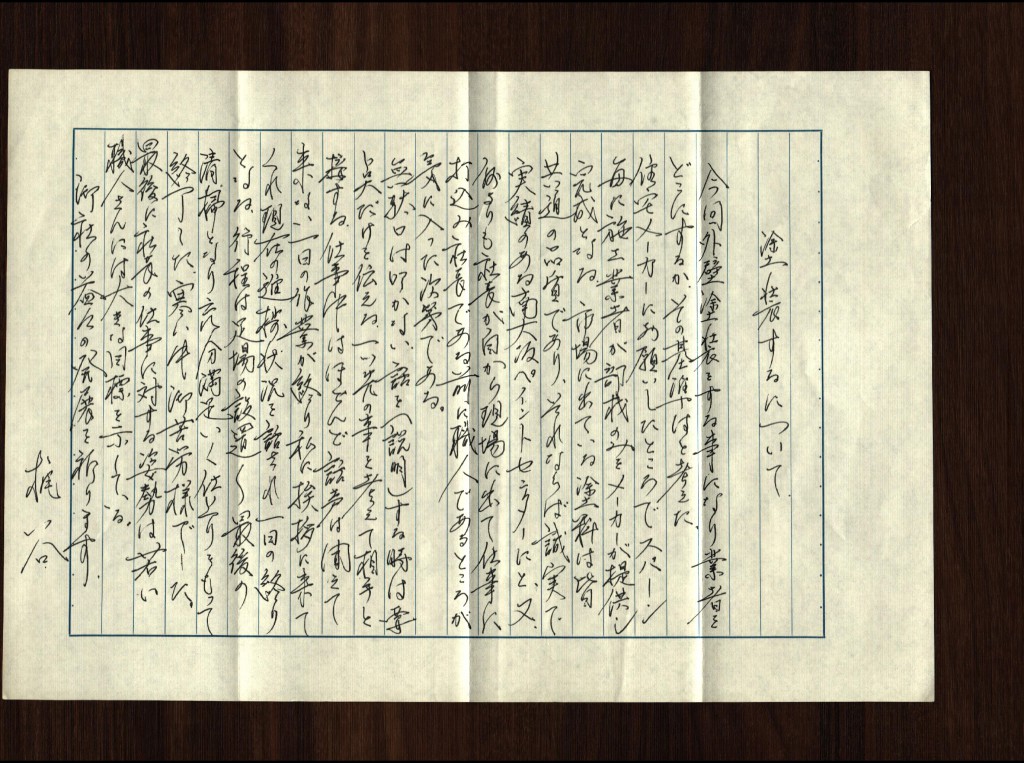 塗装するについて
今回外壁塗装をする事になり業者を
どこにするか、その基準はと考えた
住宅メーカーにお願いしたところでスパーン
毎に施工業者が部材のみをメーカーが提供し
完成となる。市場に出ている塗料は皆
共通の品質であり、それならば誠実で
実績のある南大阪ペイントセンターにと、又
何よりも社長が自から現場に出て仕事に
打込み社長である前に職人であるところが
気に入った次第である。
無駄口は叩かない、話を(説明)する時は要
点だけを伝える、一つ先の事を考えて相手と
接する。仕事中はほとんど話声は聞えて
来ない、一日の作業が終り私に挨拶に来て
くれ現在の進捗状況を話され一日の終り
となる、行程は足場の設置〜最後の
清掃となり充分満足いく仕上りをもって
終了した。寒い中御苦労様でした。
最後に社長の仕事に対する姿勢は若い
職人さんには大きな目標を示している。
御社の益々の発展を祈ります。
梶谷